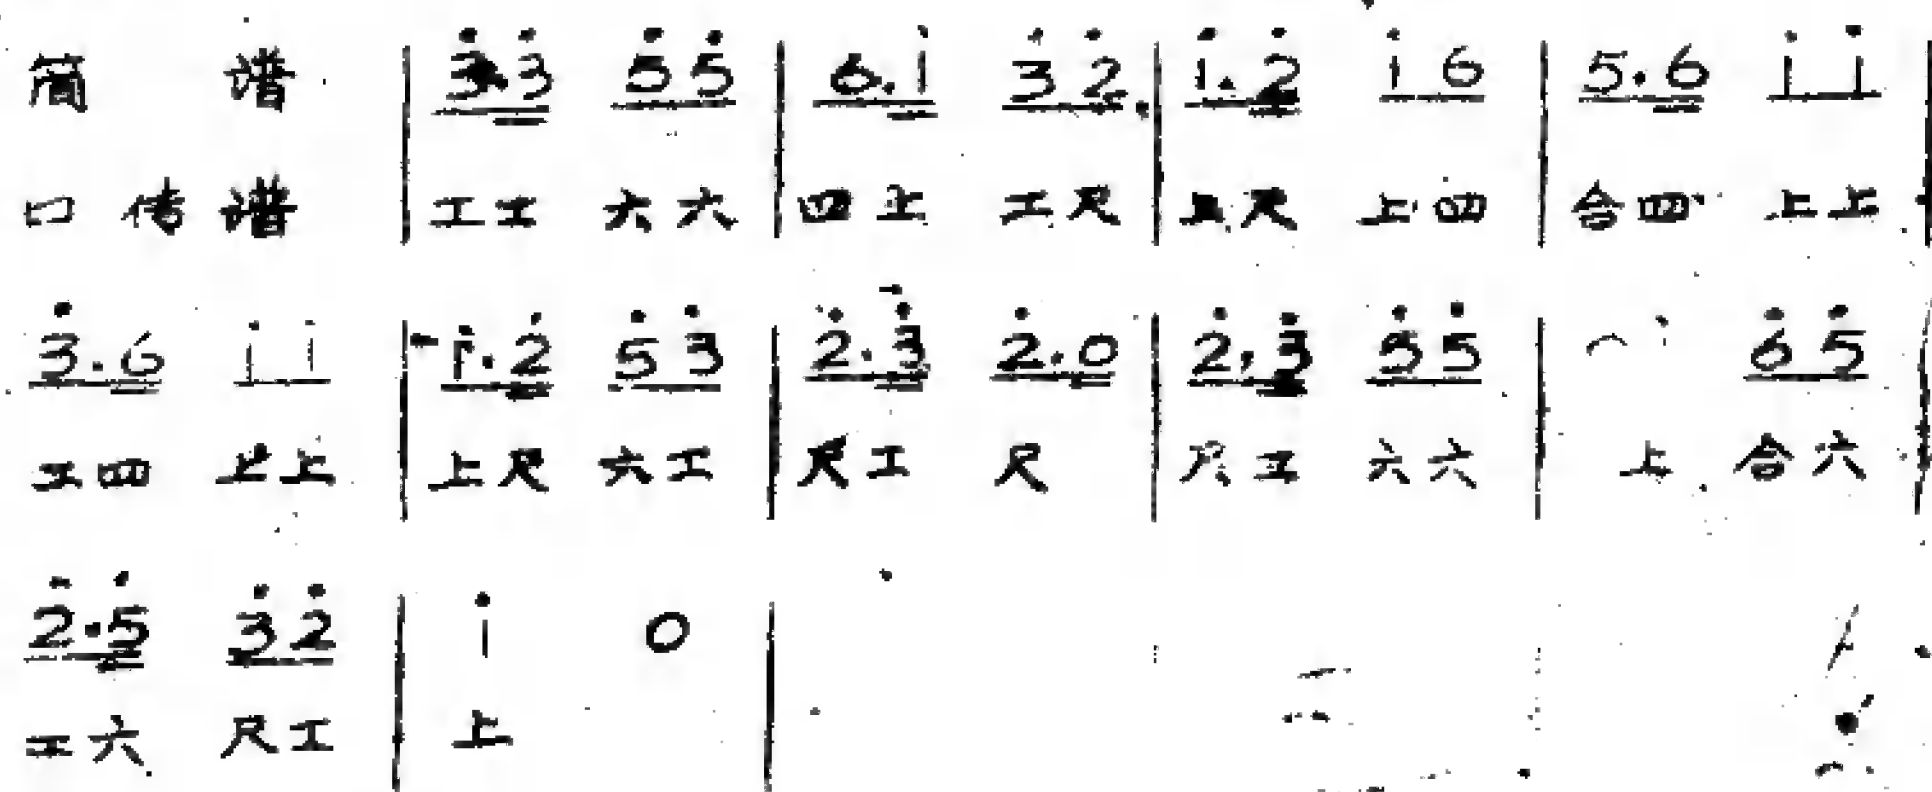 简 谱 | 3̇.3̇ 5̇5̇ | 6.i̇ 3̇2̇ | i̇.2̇ i̇6 | 5.6 i̇i̇ |
口传谱 | 工工 六六 | 四上 工尺 | 上尺 上四 | 合四 上上 |
3̇.6 i̇i̇ | i̇.2̇ 5̇3̇ | 2̇.3̇ 2̇.0 | 2̇.3̇ 5̇5̇ | 6̇5̇ |
工四 上上 | 上尺 六工 | 尺工 尺 | 尺工 六六 | 上 合六 |
2̇.5̇ 3̇2̇ | i̇ 0 |
工六 尺工 | 上 |